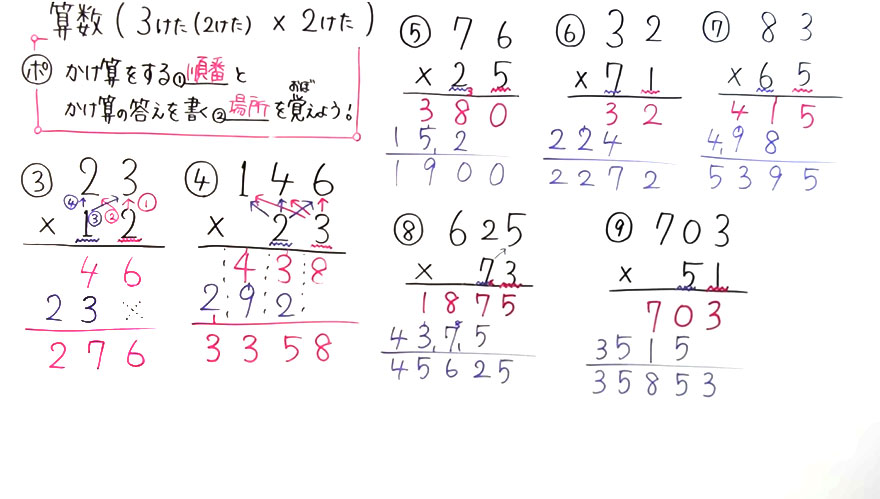 算数(3けた(2けた) × 2けた)
ポ かけ算をする①順番と
かけ算の答えを書く②場所を覚えよう!
おぼ
③ 23
④ ③ ② ①
× 12
46
23
276
④ 146
× 23
438
292
3358
⑤ 76
× 25
380
152
1900
⑥ 32
× 71
32
224
2272
⑦ 83
× 65
415
498
5395
⑧ 625
× 73
1875
4375
45625
⑨ 703
× 51
703
3515
35853